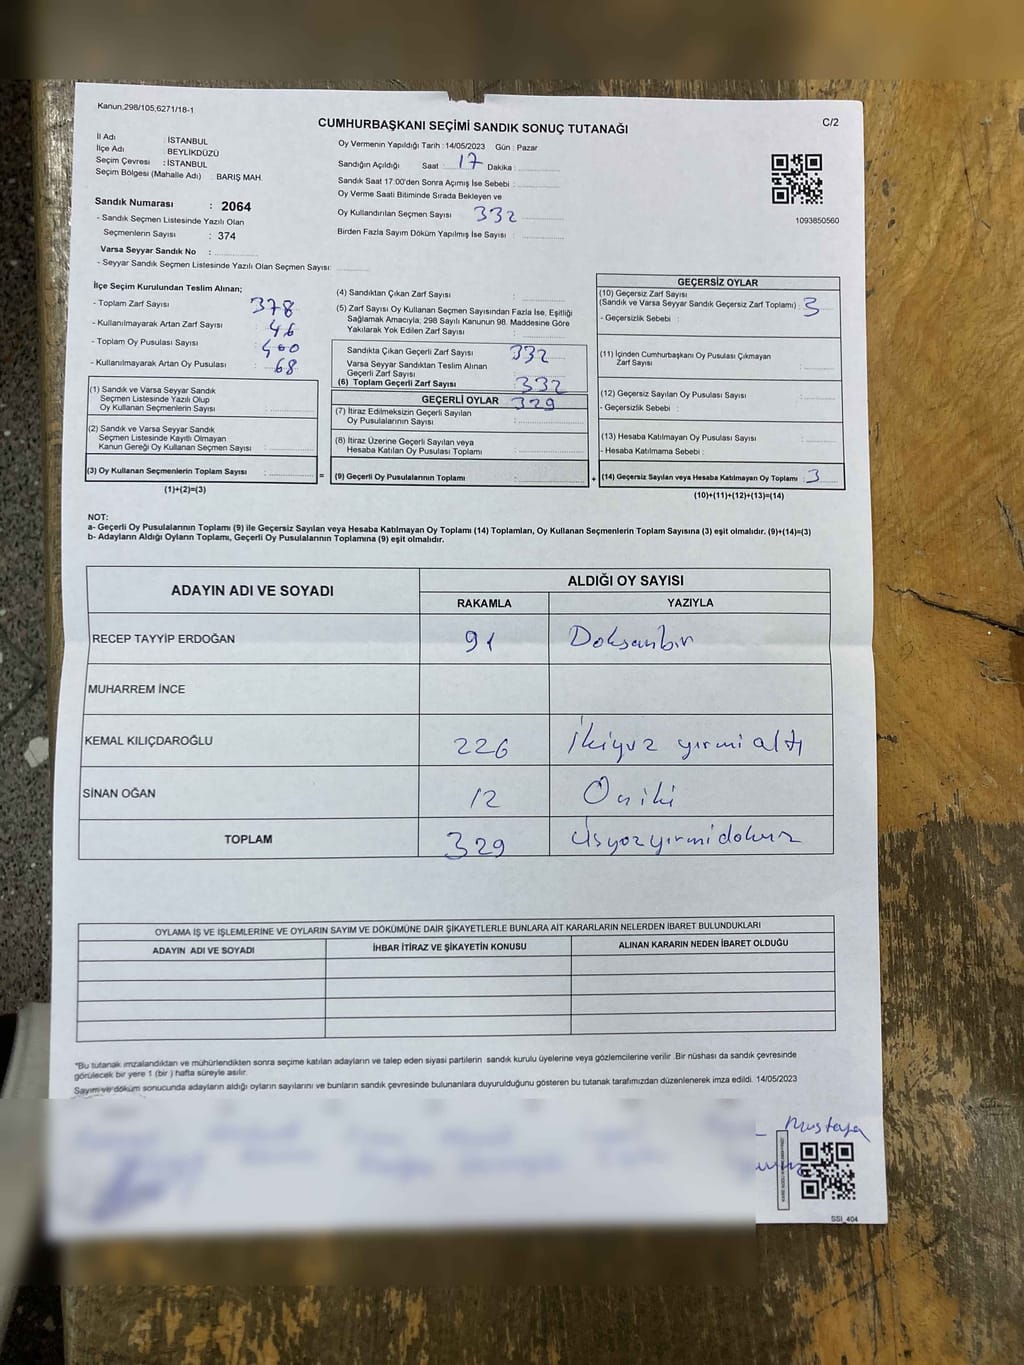 Kanun,298/105,6271/18-1
C/2
CUMHURBAŞKANI SEÇİMİ SANDIK SONUÇ TUTANAĞI
İl Adı : İSTANBUL
İlçe Adı : BEYLİKDÜZÜ
Seçim Çevresi : İSTANBUL
Seçim Bölgesi (Mahalle Adı) : BARIŞ MAH.
Sandık Numarası : 2064
- Sandık Seçmen Listesinde Yazılı Olan
Seçmenlerin Sayısı : 374
Varsa Seyyar Sandık No :
- Seyyar Sandık Seçmen Listesinde Yazılı Olan Seçmen Sayısı:
Oy Vermenin Yapıldığı Tarih : 14/05/2023 Gün : Pazar
Sandığın Açıldığı Saat : 17 Dakika :
Sandık Saat 17:00'den Sonra Açımış İse Sebebi :
Oy Verme Saati Bitiminde Sırada Bekleyen ve
Oy Kullandırılan Seçmen Sayısı 332
Birden Fazla Sayım Döküm Yapılmış İse Sayısı :
1093850560
İlçe Seçim Kurulundan Teslim Alınan;
- Toplam Zarf Sayısı 378
- Kullanılmayarak Artan Zarf Sayısı : 46
- Toplam Oy Pusulası Sayısı : 400
- Kullanılmayarak Artan Oy Pusulası : 68
(1) Sandık ve Varsa Seyyar Sandık
Seçmen Listesinde Yazılı Olup
Oy Kullanan Seçmenlerin Sayısı :
(2) Sandık ve Varsa Seyyar Sandık
Seçmen Listesinde Kayıtlı Olmayan
Kanun Gereği Oy Kullanan Seçmen Sayısı :
(3) Oy Kullanan Seçmenlerin Toplam Sayısı : =
(1)+(2)=(3)
(4) Sandıktan Çıkan Zarf Sayısı :
(5) Zarf Sayısı Oy Kullanan Seçmen Sayısından Fazla İse, Eşitliği
Sağlamak Amacıyla, 298 Sayılı Kanunun 98. Maddesine Göre
Yakılarak Yok Edilen Zarf Sayısı :
Sandıkta Çıkan Geçerli Zarf Sayısı 332
Varsa Seyyar Sandıktan Teslim Alınan
Geçerli Zarf Sayısı
(6) Toplam Geçerli Zarf Sayısı : 332
GEÇERLİ OYLAR 329
(7) İtiraz Edilmeksizin Geçerli Sayılan
Oy Pusulalarının Sayısı :
(8) İtiraz Üzerine Geçerli Sayılan veya
Hesaba Katılan Oy Pusulası Toplamı :
(9) Geçerli Oy Pusulalarının Toplamı : +
GEÇERSİZ OYLAR
(10) Geçersiz Zarf Sayısı
(Sandık ve Varsa Seyyar Sandık Geçersiz Zarf Toplamı) : 3
- Geçersizlik Sebebi :
(11) İçinden Cumhurbaşkanı Oy Pusulası Çıkmayan
Zarf Sayısı :
(12) Geçersiz Sayılan Oy Pusulası Sayısı :
- Geçersizlik Sebebi :
(13) Hesaba Katılmayan Oy Pusulası Sayısı :
- Hesaba Katılmama Sebebi :
(14) Geçersiz Sayılan veya Hesaba Katılmayan Oy Toplamı : 3
(10)+(11)+(12)+(13)=(14)
NOT:
a- Geçerli Oy Pusulalarının Toplamı (9) ile Geçersiz Sayılan veya Hesaba Katılmayan Oy Toplamı (14) Toplamları, Oy Kullanan Seçmenlerin Toplam Sayısına (3) eşit olmalıdır. (9)+(14)=(3)
b- Adayların Aldığı Oyların Toplamı, Geçerli Oy Pusulalarının Toplamına (9) eşit olmalıdır.
ADAYIN ADI VE SOYADI ALDIĞI OY SAYISI
RAKAMLA YAZIYLA
RECEP TAYYİP ERDOĞAN 91 Doksanbir
MUHARREM İNCE
KEMAL KILIÇDAROĞLU 226 İkiyuz yirmi altı
SİNAN OĞAN 12 Oniki
TOPLAM 329 Üsyozyirmidokuz
OYLAMA İŞ VE İŞLEMLERİNE VE OYLARIN SAYIM VE DÖKÜMÜNE DAİR ŞİKAYETLERLE BUNLARA AİT KARARLARIN NELERDEN İBARET BULUNDUKLARI
ADAYIN ADI VE SOYADI İHBAR İTİRAZ VE ŞİKAYETİN KONUSU ALINAN KARARIN NEDEN İBARET OLDUĞU
*Bu tutanak imzalandıktan ve mühürlendikten sonra seçime katılan adayların ve talep eden siyasi partilerin sandık kurulu üyelerine veya gözlemcilerine verilir .Bir nüshası da sandık çevresinde
görülecek bir yere 1 (bir ) hafta süreyle asılır.
Sayım ve döküm sonucunda adayların aldığı oyların sayılarını ve bunların sandık çevresinde bulunanlara duyurulduğunu gösteren bu tutanak tarafımızdan düzenlenerek imza edildi. 14/05/2023
Mustafa
SSI_404